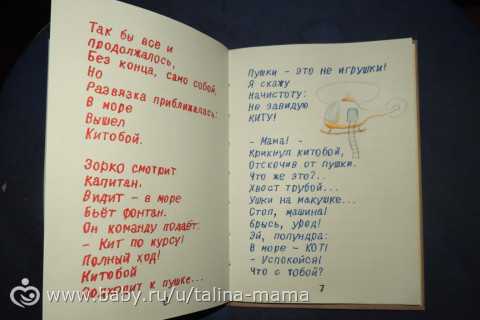 Так бы всё и
продолжалось,
Без конца, само собой,
Но
Развязка приближалась:
В море
Вышел
Китобой.
Зорко смотрит
Капитан.
Видит - в море
Бьёт фонтан.
Он команду подаёт:
- Кит по курсу!
Полный ход!
Китобой
Подходит к пушке...
Пушки - это не игрушки!
Я скажу
Начистоту:
Не завидую
КИТУ!
- Мама! -
Крикнул китобой,
Отскочив от пушки.
Что же это?..
Хвост трубой...
Ушки на макушке...
Стоп, машина!
брысь, урод!
Эй, полундра:
В море - КОТ!
- Успокойся!
Что с тобой?
7
www.baby.ru/u/talina-mama